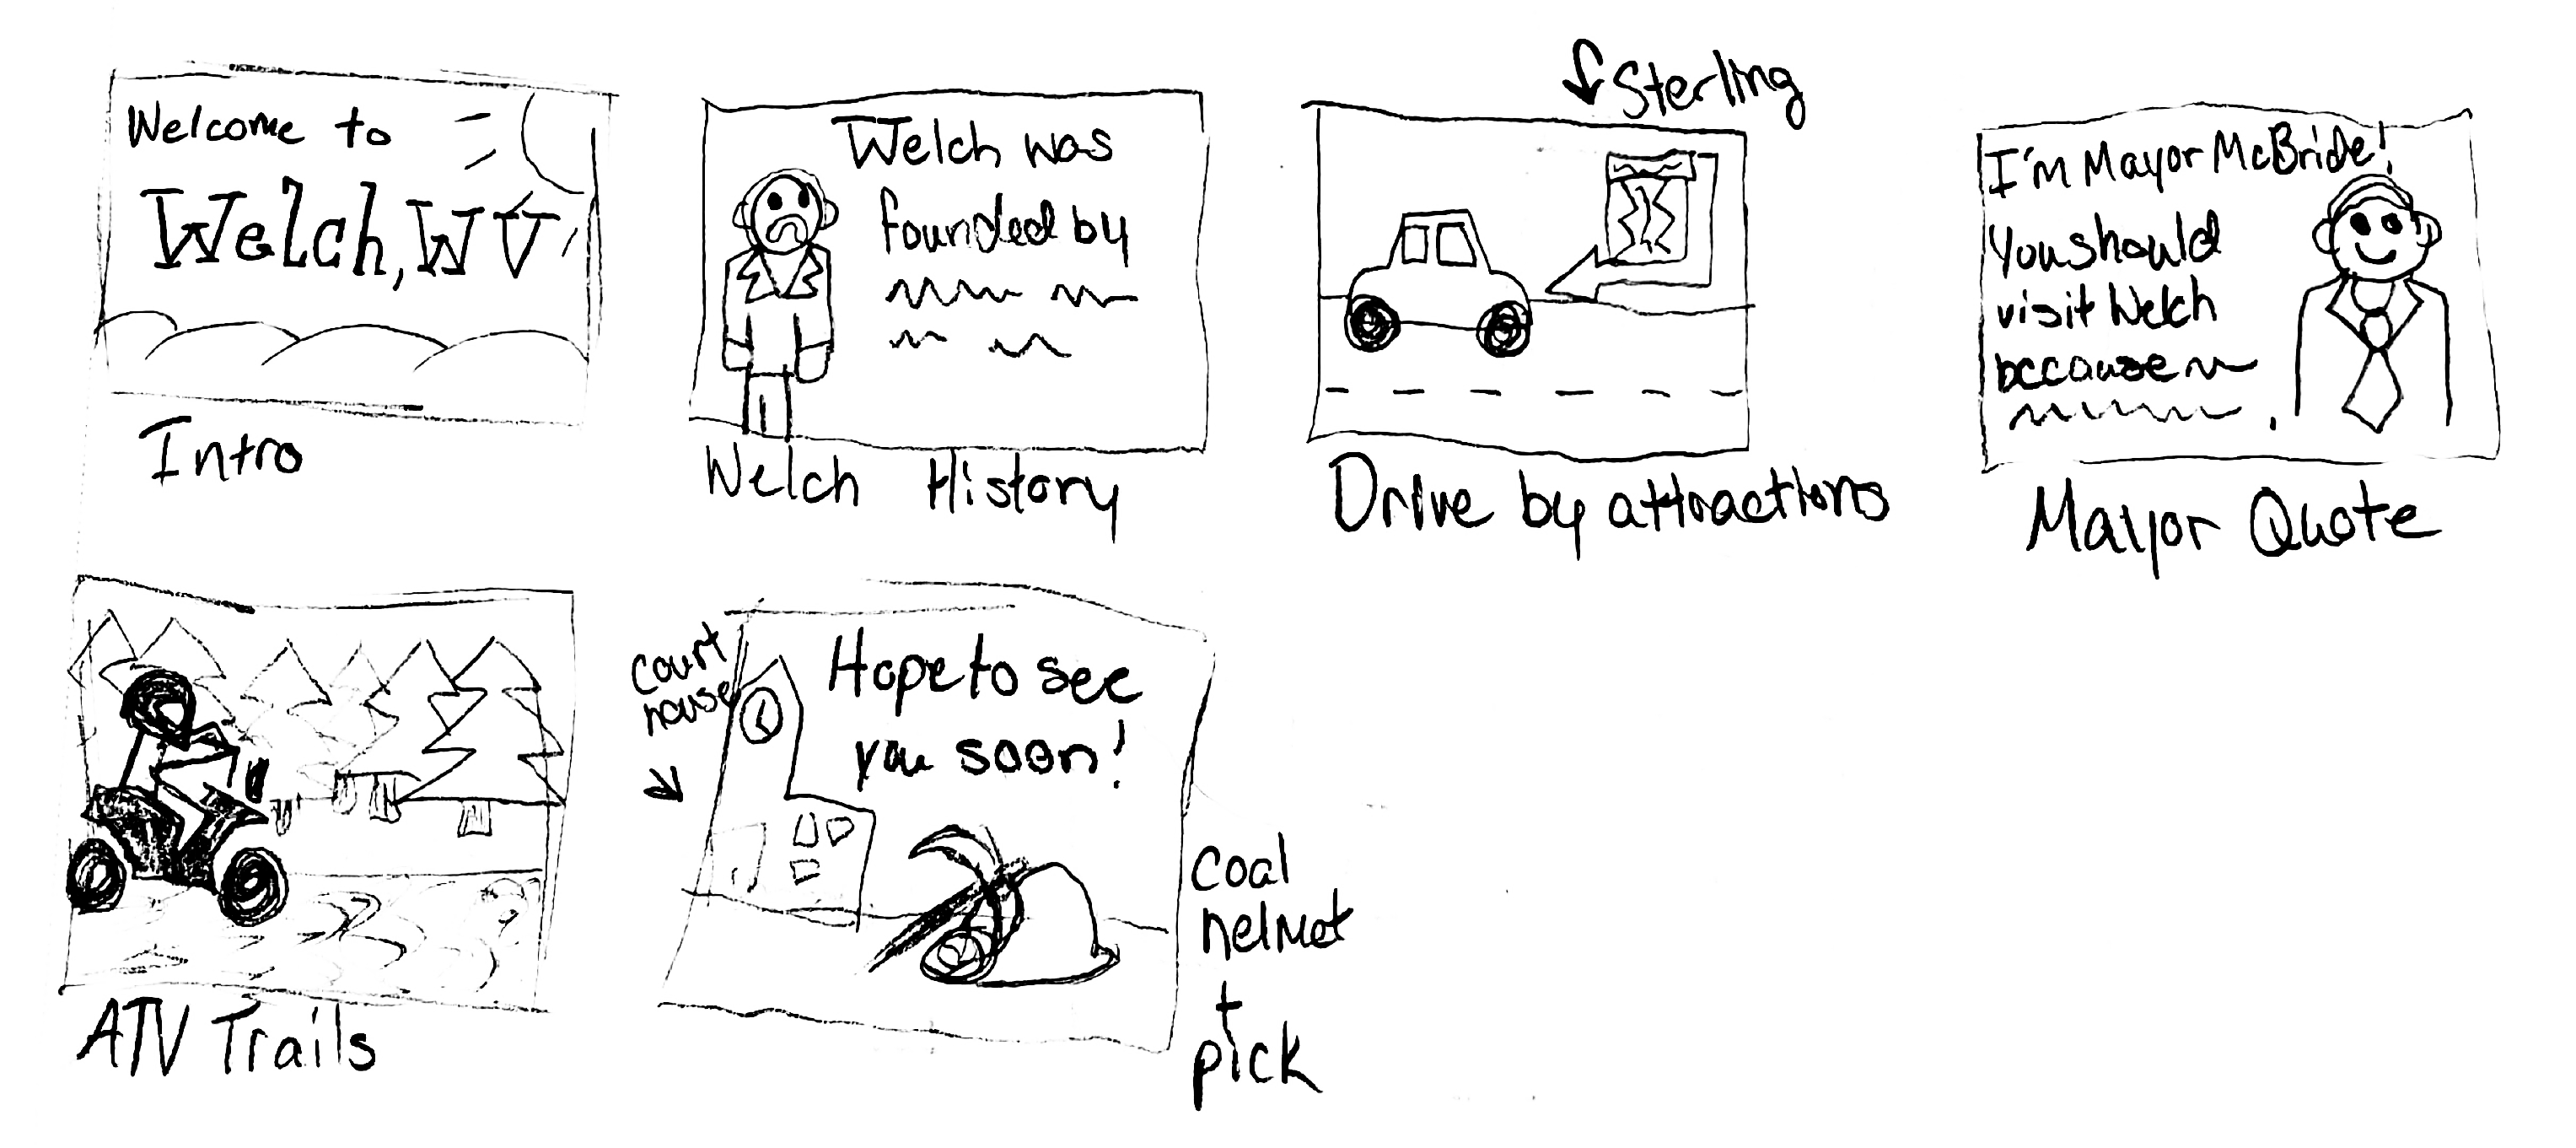 Welcome to
Welch, WV
Intro
Welch was
founded by
Welch History
Sterling
Drive by attractions
I'm Mayor McBride!
You should
visit Welch
because
Mayor Quote
ATV Trails
court
house
Hope to see
you soon!
coal
helmet
+
pick